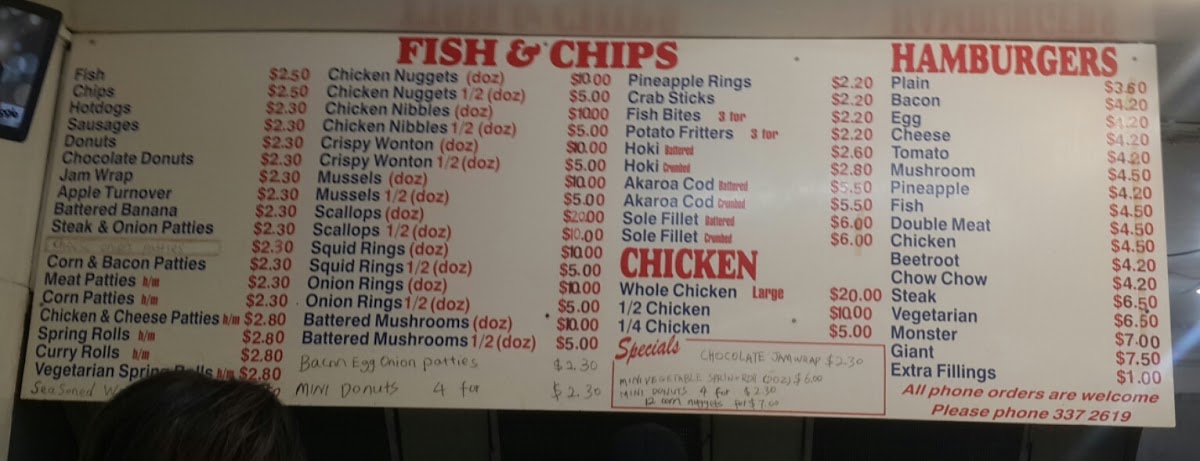 FISH & CHIPS
Fish $2.50
Chips $2.50
Hotdogs $2.30
Sausages $2.30
Donuts $2.30
Chocolate Donuts $2.30
Jam Wrap $2.30
Apple Turnover $2.30
Battered Banana $2.30
Steak & Onion Patties $2.30
patties $2.30
Corn & Bacon Patties $2.30
Meat Patties h/m $2.30
Corn Patties h/m $2.30
Chicken & Cheese Patties h/m $2.80
Spring Rolls h/m $2.80
Curry Rolls h/m $2.80
Vegetarian Spring Rolls h/m $2.80
Seasoned
Chicken Nuggets (doz) $10.00
Chicken Nuggets 1/2 (doz) $5.00
Chicken Nibbles (doz) $10.00
Chicken Nibbles 1/2 (doz) $5.00
Crispy Wonton (doz) $10.00
Crispy Wonton 1/2 (doz) $5.00
Mussels (doz) $10.00
Mussels 1/2 (doz) $5.00
Scallops (doz) $20.00
Scallops 1/2 (doz) $10.00
Squid Rings (doz) $10.00
Squid Rings 1/2 (doz) $5.00
Onion Rings (doz) $10.00
Onion Rings 1/2 (doz) $5.00
Battered Mushrooms (doz) $10.00
Battered Mushrooms 1/2 (doz) $5.00
Bacon Egg Onion patties $2.30
MINI DONUTS 4 for $2.30
Pineapple Rings $2.20
Crab Sticks $2.20
Fish Bites 3 for $2.20
Potato Fritters 3 for $2.20
Hoki Battered $2.60
Hoki Crumbed $2.80
Akaroa Cod Battered $5.50
Akaroa Cod Crumbed $5.50
Sole Fillet Battered $6.00
Sole Fillet Crumbed $6.00
CHICKEN
Whole Chicken Large $20.00
1/2 Chicken $10.00
1/4 Chicken $5.00
Specials
CHOCOLATE JAM WRAP $2.30
MINI VEGETABLE SPRING ROLL (DOZ) $6.00
MINI DONUTS 4 for $2.30
12 corn nuggets for $7.00
HAMBURGERS
Plain $3.60
Bacon $4.20
Egg $4.20
Cheese $4.20
Tomato $4.20
Mushroom $4.50
Pineapple $4.20
Fish $4.50
Double Meat $4.50
Chicken $4.50
Beetroot $4.20
Chow Chow $4.20
Steak $6.50
Vegetarian $6.50
Monster $7.00
Giant $7.50
Extra Fillings $1.00
All phone orders are welcome
Please phone 337 2619